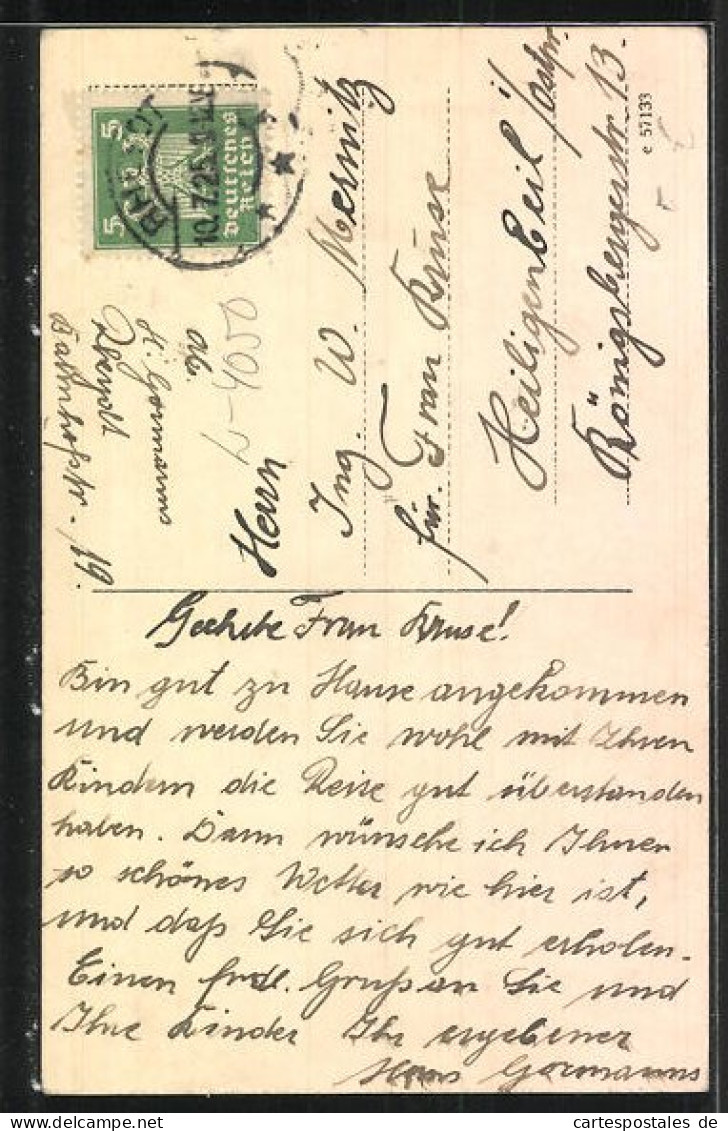 5 5
Deutsches
Reich
10.7.25
Abs.
H. Gormanns
Bahnhofstr. 19.
Herrn
Ing. W. Mernitz
für Frau Kruse
Heiligenbeil /Ostpr.
Königsbergerstr. 13.
e 57133
Geehrte Frau Kruse!
Bin gut zu Hause angekommen
und werden Sie wohl mit Ihren
Kindern die Reise gut überstanden
haben. Dann wünsche ich Ihnen
so schönes Wetter wie hier ist,
und daß Sie sich gut erholen.
Einen frdl. Gruß an Sie und
Ihre Kinder Ihr ergebener
Hans Gormanns
cartespostales.de